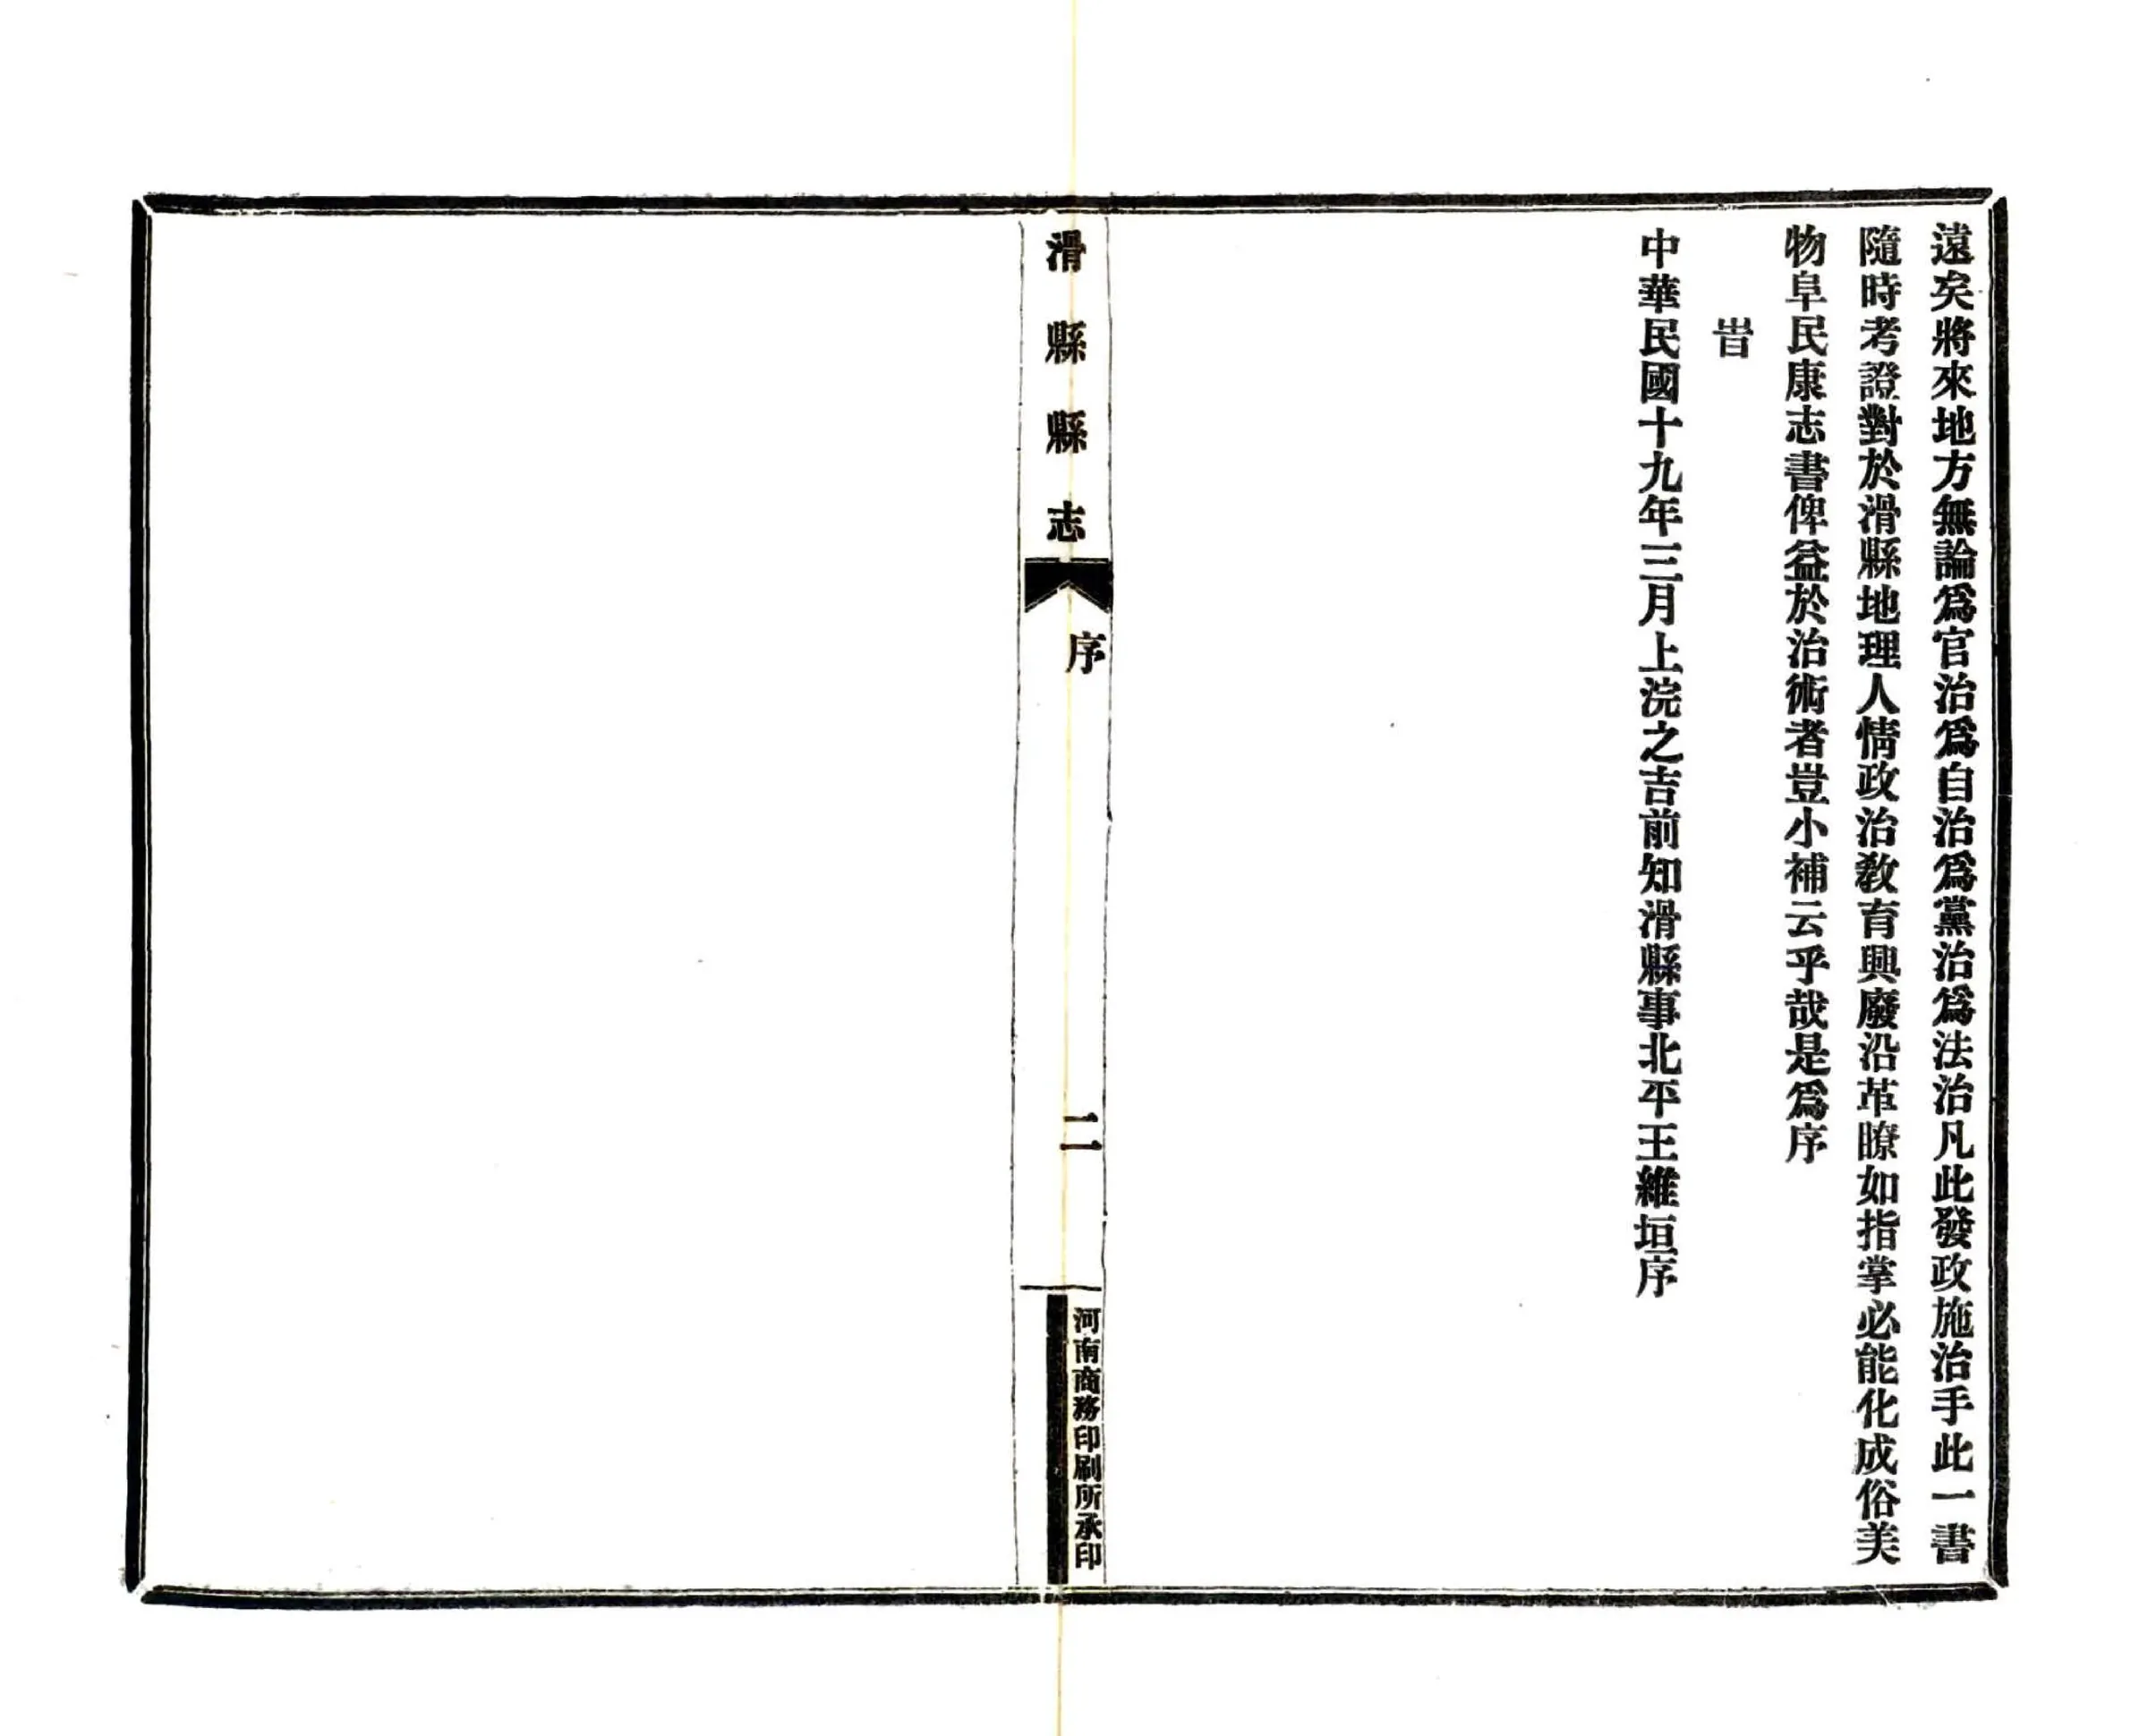 遠矣將來地方無論爲官治爲自治爲黨治爲法治凡此發政施治手此一書
隨時考證對於滑縣地理人情政治敎育興廢沿革瞭如指掌必能化成俗美
物阜民康志書俾益於治術者豈小補云乎哉是爲序
旹
中華民國十九年三月上浣之吉前知滑縣事北平王維垣序
滑縣縣志
序
二
河南商務印刷所承印